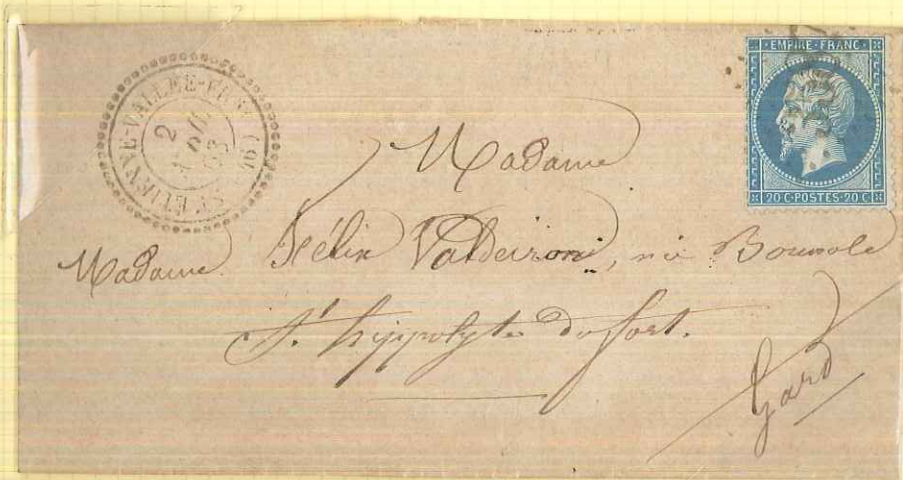 ST ETIENNE-VALLEE-FRAN (46)
2
AOU
63
EMPIRE·FRANC
20 C·POSTES·20 C
Madame
Madame Félix Valdeiron, née
St hyppolyte du fort.
Gard